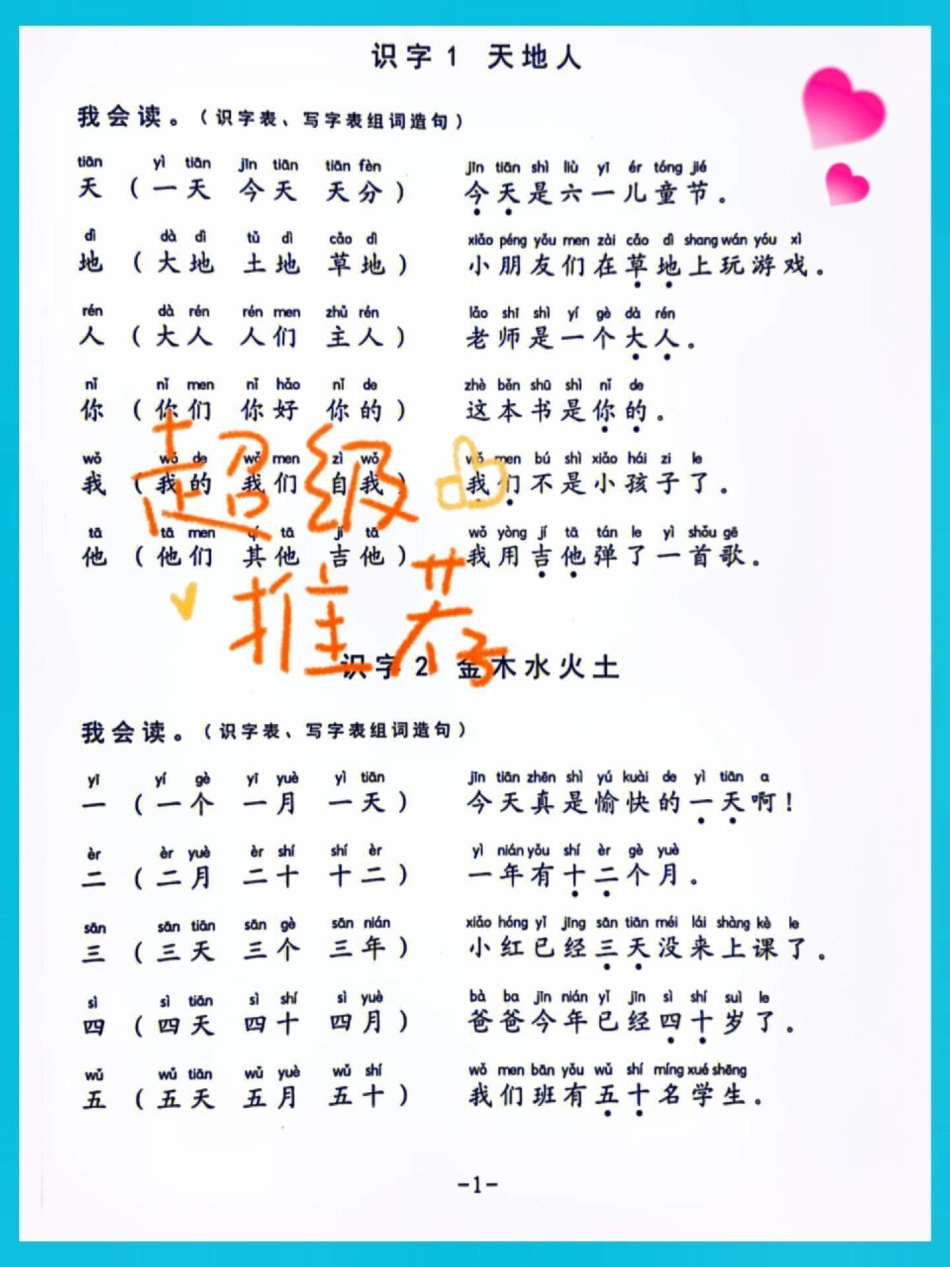 识字1 天地人
我会读。(识字表、写字表组词造句)
tiān yì tiān jīn tiān tiān fèn jīn tiān shì liù yī ér tóng jié
天(一天 今天 天分) 今天是六一儿童节。
dì dà dì tǔ dì cǎo dì xiǎo péng yǒu men zài cǎo dì shang wán yóu xì
地(大地 土地 草地) 小朋友们在草地上玩游戏。
rén dà rén rén men zhǔ rén lǎo shī shì yí gè dà rén
人(大人 人们 主人) 老师是一个大人。
nǐ nǐ men nǐ hǎo nǐ de zhè běn shū shì nǐ de
你(你们 你好 你的) 这本书是你的。
wǒ wǒ de wǒ men zì wǒ wǒ men bú shì xiǎo hái zi le
我(我的 我们 自我) 我们不是小孩子了。
tā tā men qí tā jí tā wǒ yòng jí tā tán le yì shǒu gē
他(他们 其他 吉他) 我用吉他弹了一首歌。
超级
推荐
识字2 金木水火土
我会读。(识字表、写字表组词造句)
yī yí gè yī yuè yì tiān jīn tiān zhēn shì yú kuài de yì tiān a
一(一个 一月 一天) 今天真是愉快的一天啊!
èr èr yuè èr shí shí èr yì nián yǒu shí èr gè yuè
二(二月 二十 十二) 一年有十二个月。
sān sān tiān sān gè sān nián xiǎo hóng yǐ jīng sān tiān méi lái shàng kè le
三(三天 三个 三年) 小红已经三天没来上课了。
sì sì tiān sì shí sì yuè bà ba jīn nián yǐ jīn sì shí suì le
四(四天 四十 四月) 爸爸今年已经四十岁了。
wǔ wǔ tiān wǔ yuè wǔ shí wǒ men bān yǒu wǔ shí míng xué shēng
五(五天 五月 五十) 我们班有五十名学生。
-1-